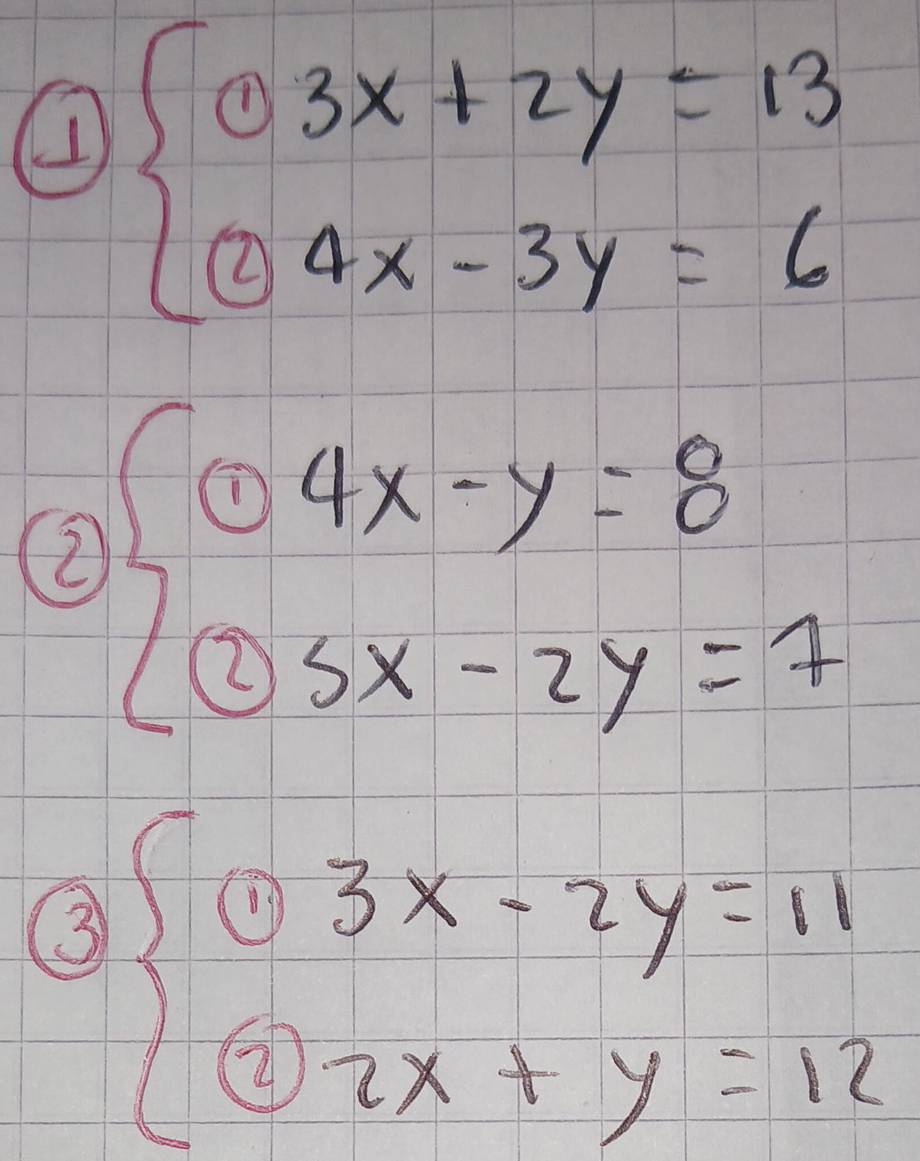 ① { ① 3x + 2y = 13
② 4x - 3y = 6
② { ① 4x - y = 8
② 5x - 2y = 7
③ { ① 3x - 2y = 11
② 2x + y = 12